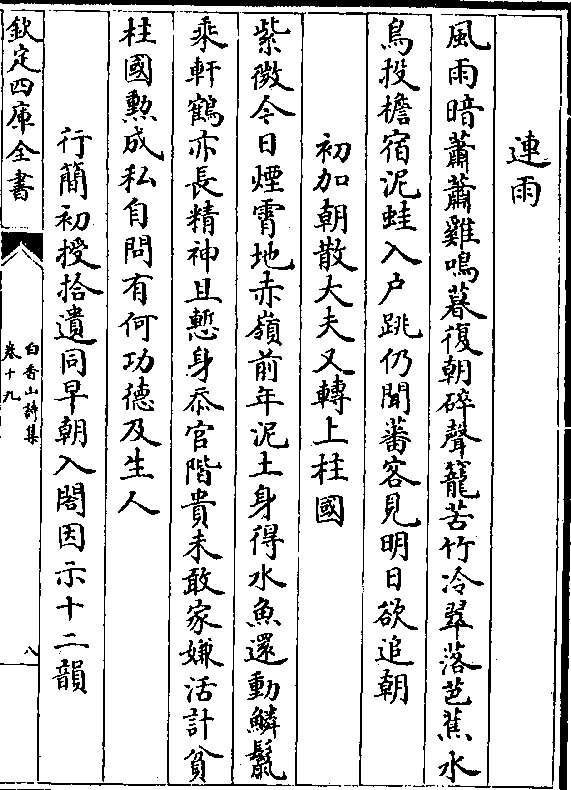 連雨
風雨暗蕭蕭雞鳴暮復朝碎聲籠苦竹冷翠落芭蕉水
鳥投檐宿泥蛙入户跳仍聞蕃客見明日欲追朝
初加朝散大夫又轉上柱國
紫微今日煙霄地赤嶺前年泥土身得水魚還動鱗鬛
乘軒鶴亦長精神且慙身忝官階貴未敢家嫌活計貧
柱國勲成私自問有何功德及生人
行簡初授拾遺同早朝入閣因示十二韻
欽定四庫全書
白香山詩集
卷十九
八